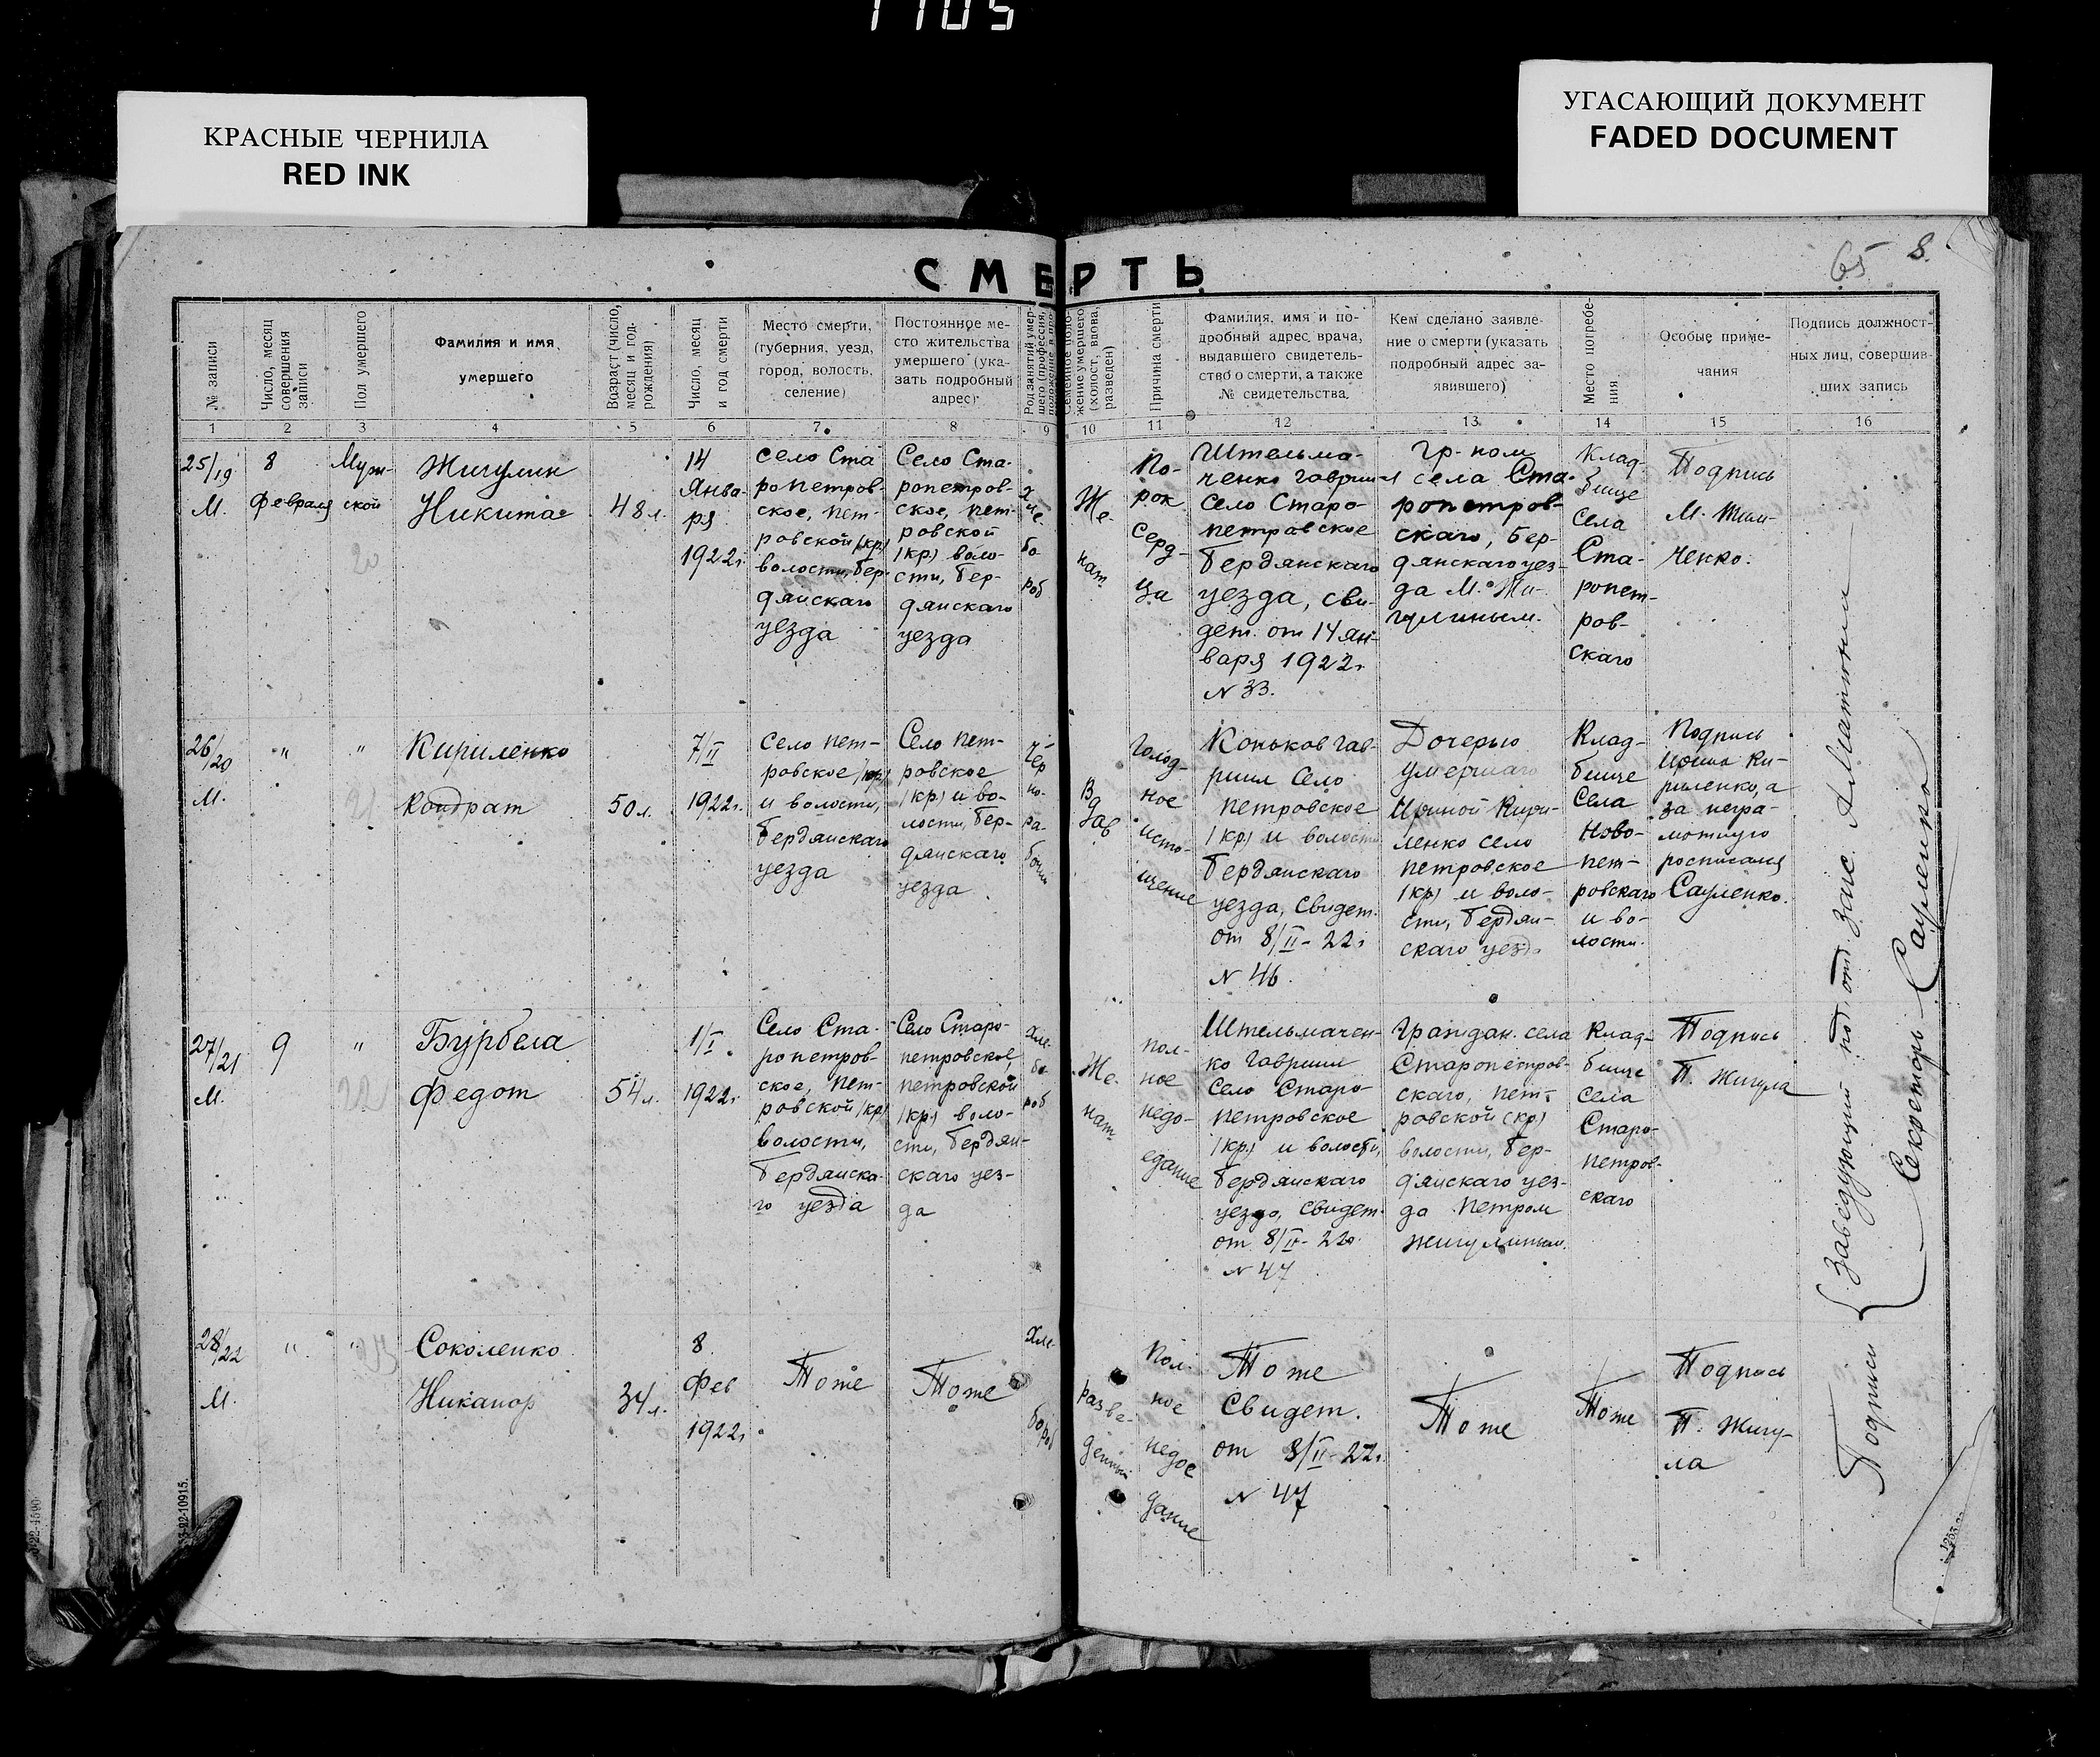 1105
КРАСНЫЕ ЧЕРНИЛА
RED INK
УГАСАЮЩИЙ ДОКУМЕНТ
FADED DOCUMENT
65 8.
СМЕРТЬ
№ записи
Число, месяц
совершения
записи
Пол умершего
Фамилия и имя
умершего
Возраст (число,
месяц и год
рождения)
Число, месяц
и год смерти
Место смерти,
(губерния, уезд,
город, волость,
селение)
Постоянное ме-
сто жительства
умершего (ука-
зать подробный
адрес)
Род занятий умер-
шего (профессия,
Семейное поло-
жение умершего
(холост, вдова,
разведен)
Причина смерти
Фамилия, имя и по-
дробный адрес врача,
выдавшего свидетель-
ство о смерти, а также
№ свидетельства.
Кем сделано заявле-
ние о смерти (указать
подробный адрес за-
явившего)
Место погребе-
ния
Особые приме-
чания
Подпись должност-
ных лиц, совершив-
ших запись
1 2 3 4 5 6 7 8 9 10 11 12 13 14 15 16
25/19
М.
8
Февраля
Муж-
ской
20
Жигулин
Никита
48 л.
14
Янва-
ря
1922г.
село Ста
ропетров-
ское, Пет-
ровской (кр.)
волости, Бер-
дянскаго
уезда
Село Ста-
ропетров-
ское, Пет-
ровской
(кр.) воло-
сти, Бер-
дянскаго
уезда
бо
роб
Же-
нат
По-
рок
Серд-
ца
Штельма-
ченко Гавриил
Село Старо-
петровское
Бердянскаго
уезда, сви-
дет. от 14 ян-
варя 1922г.
N 33.
Гр-ном
села Ста-
ропетров-
скаго, Бер-
дянскаго уез-
да М. Жи-
гулиным.
Клад-
бище
Села
Ста-
ропет-
ров-
скаго
Подпись
ченко.
26/20
М.
"
"
21
Кириленко
Кондрат
50 л.
7/II
1922г.
Село Пет-
ровское (кр.)
и волости,
Бердянскаго
уезда
Село Пет-
ровское
(кр.) и во-
лости, Бер-
дянскаго
уезда
Чер
но-
ра-
бочий
Вдов
Голод-
ное
исто-
щение
Коньков Гав-
риил Село
Петровское
(кр.) и волости
Бердянскаго
уезда, Свидет.
от 8/II-22г.
N 46.
Дочерью
умершаго
Ириной Кири-
ленко село
Петровское
(кр) и воло-
сти, Бердян-
скаго уезда
Клад-
бище
Села
Ново-
пет-
ровскаго
и во-
лости.
Подпись
Ирина Ки-
риленко, а
за негра-
мотную
росписался
Сауленко.
27/21
М.
9
"
22
Бурбела
Федот
54 л.
1/I
1922г.
Село Ста-
ропетров-
ское, Пет-
ровской (кр)
волости,
Бердянска-
го уезда
Село Старо-
петровское,
Петровской
(кр.) воло-
сти, Бердян-
скаго уез-
да
Хле-
бо
роб
Же-
нат
пол-
ное
недо-
едание
Штельмачен-
ко Гавриил
Село Старо-
петровское
(кр.) и волости,
Бердянскаго
уезда, Свидет.
от 8/II-22г.
N 47
Граждан. села
Старопетров-
скаго, Пет-
ровской (кр)
волости, Бер-
дянскаго уез-
да Петром
Жигулиным.
Клад-
бище
села
Старо-
петров-
скаго
Подпись
П. Жигула
28/22
М.
"
"
23
Соколенко
Никанор
34 л.
8
Фев
1922г.
Тоже
Тоже
Хле-
бороб
Разве-
денный
Пол-
ное
недое
дание
Тоже
Свидет.
от 8/II-22г.
N 47
Тоже
Тоже
Подпись
П. Жигу-
ла
Подписи
Заведующий под отд. Загс.
Секретарь Сауленко